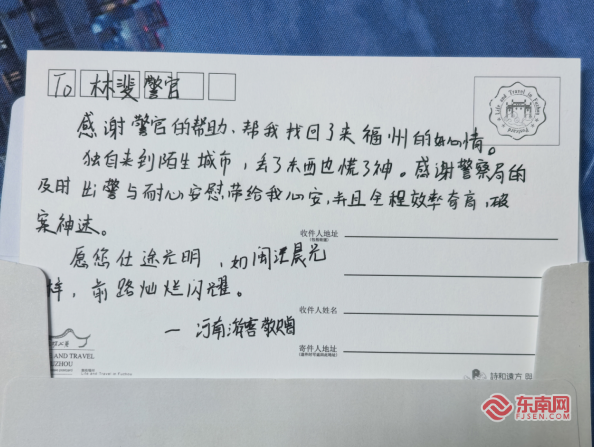 To 林斐 警官
感谢警官的帮助、帮我找回了来福州的好心情。
独自来到陌生城市，丢了东西也慌了神。感谢警察局的
及时出警与耐心安慰带给我心安，并且全程效率奇高，破
案神速。
愿您仕途光明，如闽江晨光
样，前路灿烂闪耀。
— 河南游客敬赠
收件人地址
收件人姓名
寄件人地址
AND TRAVEL
ZHOU
Life and Travel in Fuzhou
詩和遠方
东南网
FJSEN.COM